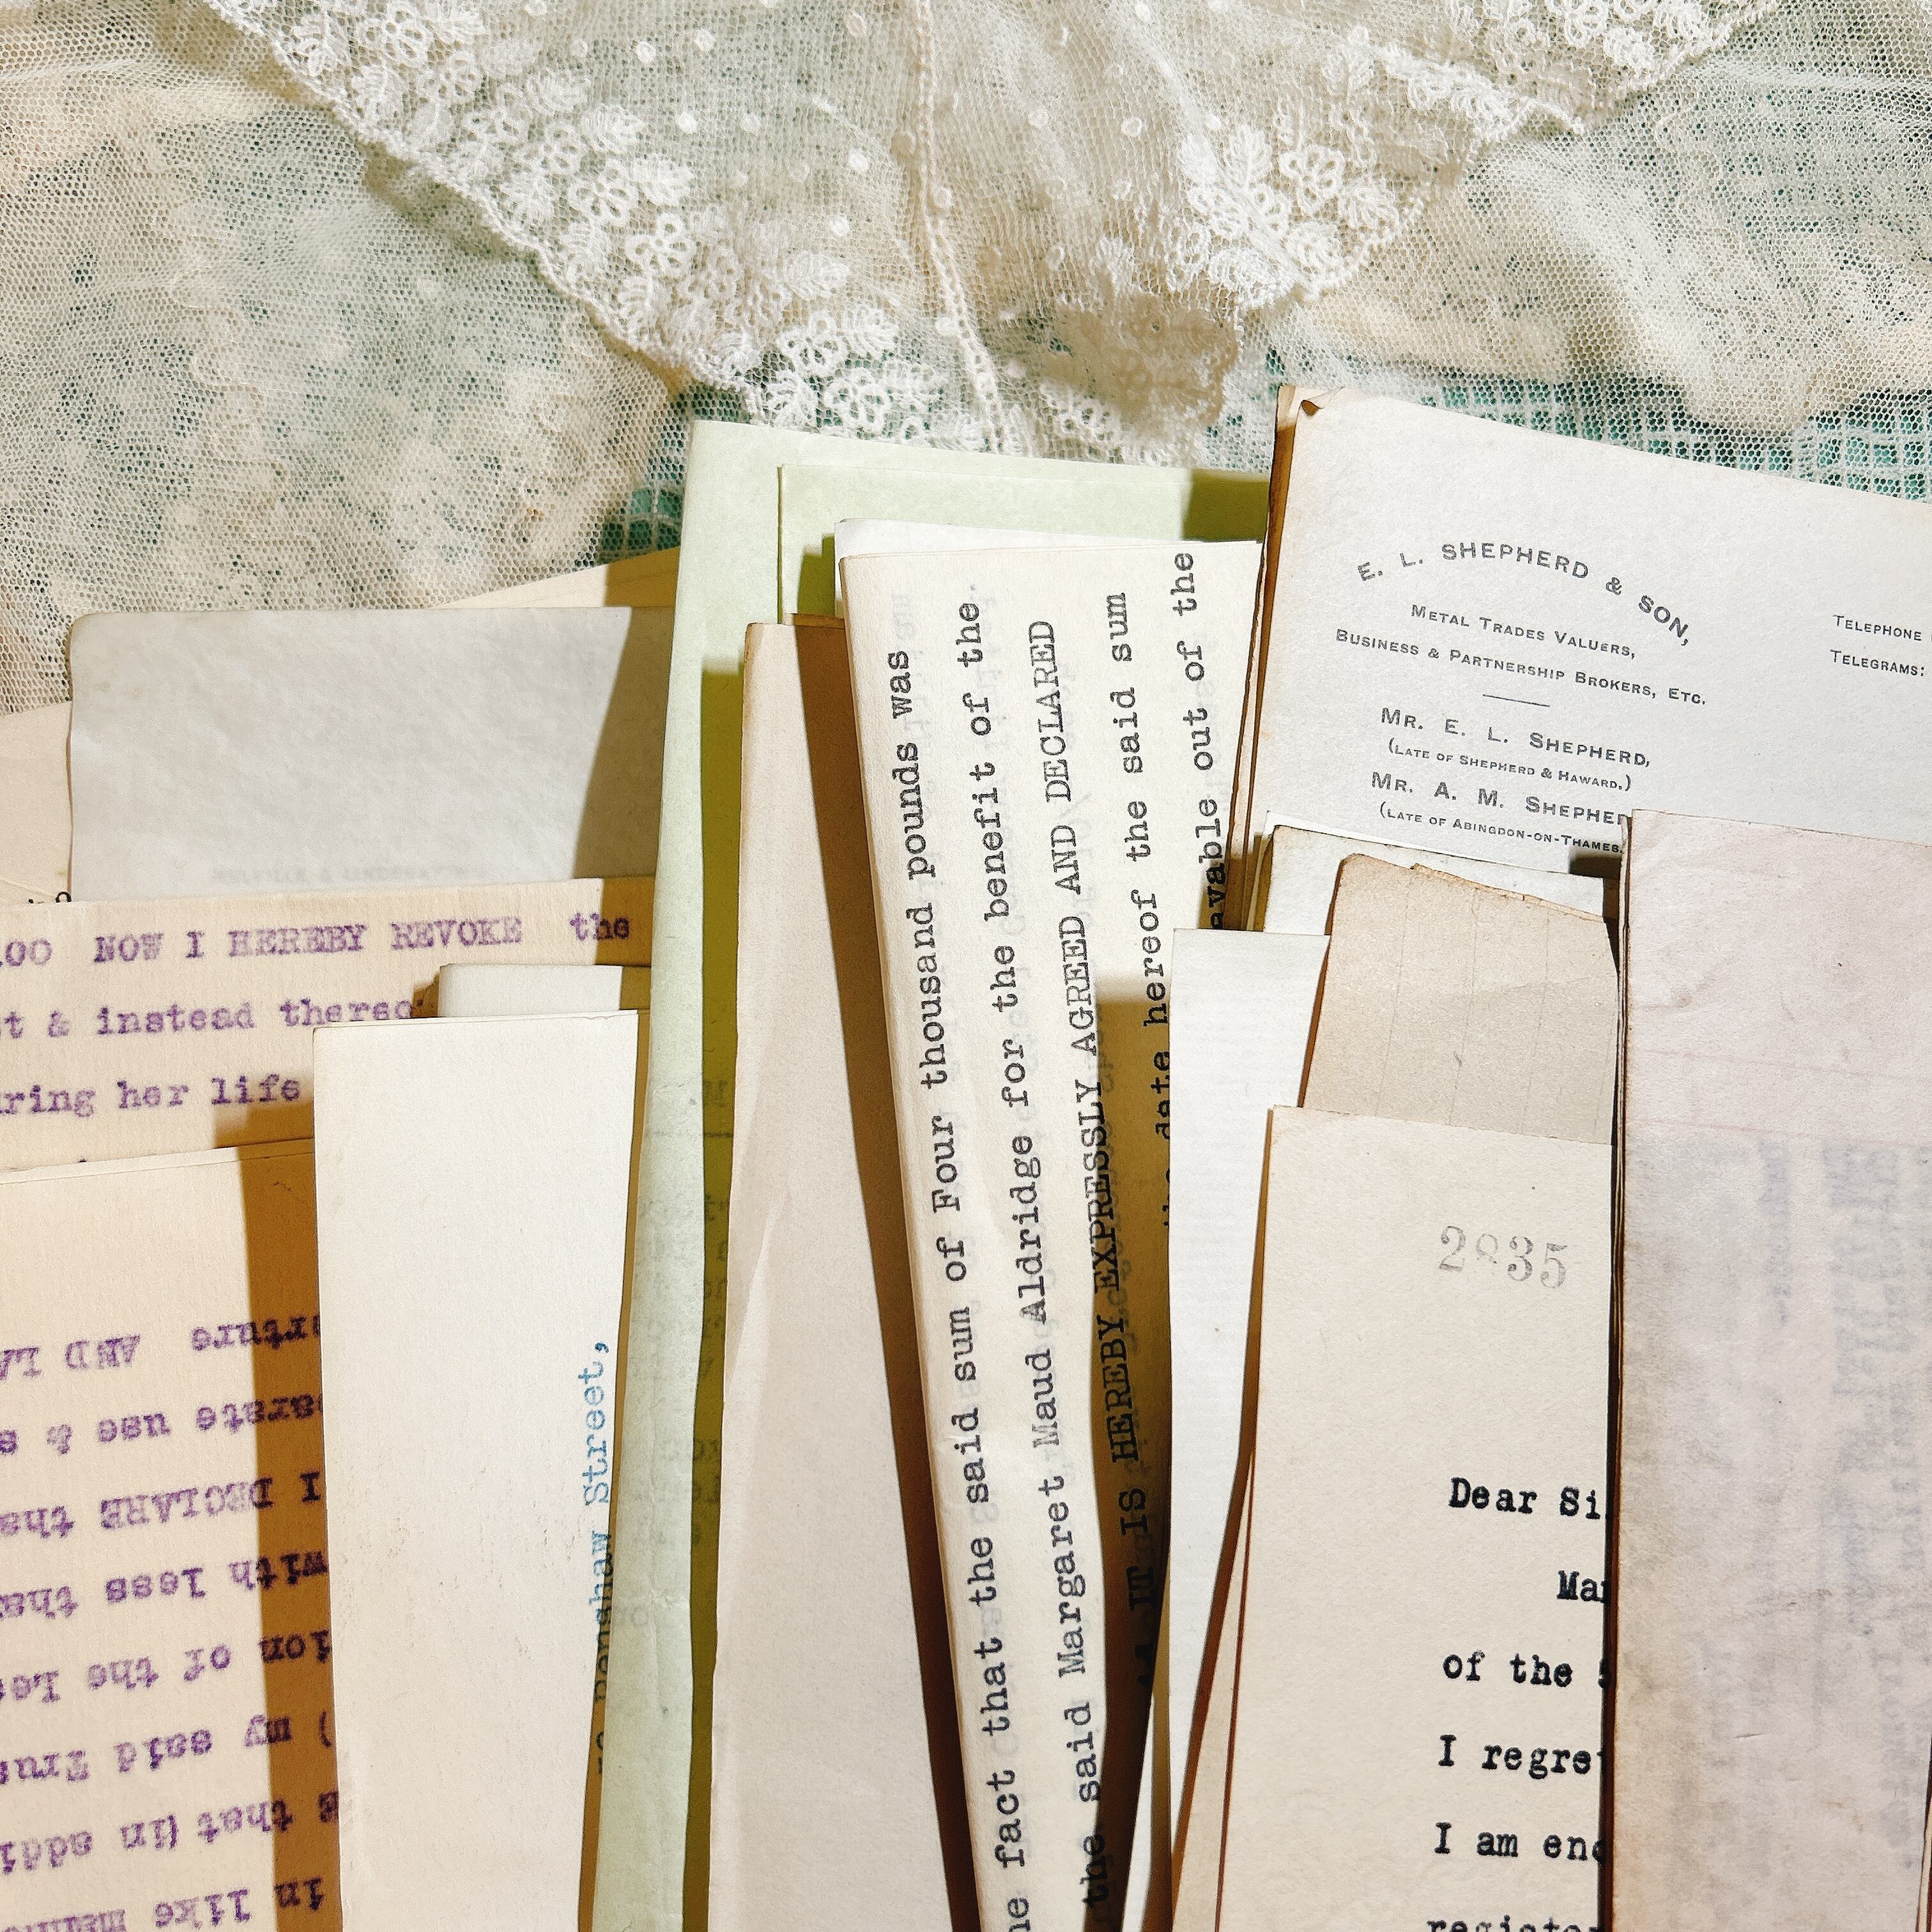 E. L. SHEPHERD & SON,
METAL TRADES VALUERS,
BUSINESS & PARTNERSHIP BROKERS, ETC.
MR. E. L. SHEPHERD,
(LATE OF SHEPHERD & HAWARD.)
MR. A. M. SHEPHER
(LATE OF ABINGDON-ON-THAMES.
TELEPHONE
TELEGRAMS:
00 NOW I HEREBY REVOKE the
t & instead thereo
ring her life
AND LA
arate use & s
I DECLARE tha
with less tha
ion of the Le
) my said Trus
s that (in addi
in like manne
Street,
he fact that the said sum of Four thousand pounds was
the said Margaret Maud Aldridge for the benefit of the
IT IS HEREBY EXPRESSLY AGREED AND DECLARED
date hereof the said sum
out of the
2835
Dear Si
Ma
of the
I regre
I am enc
register